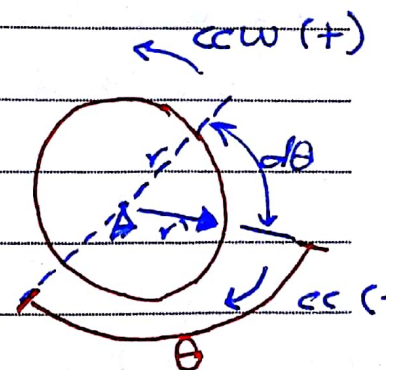 ccw (+)
r
dθ
r
cc (-
θ